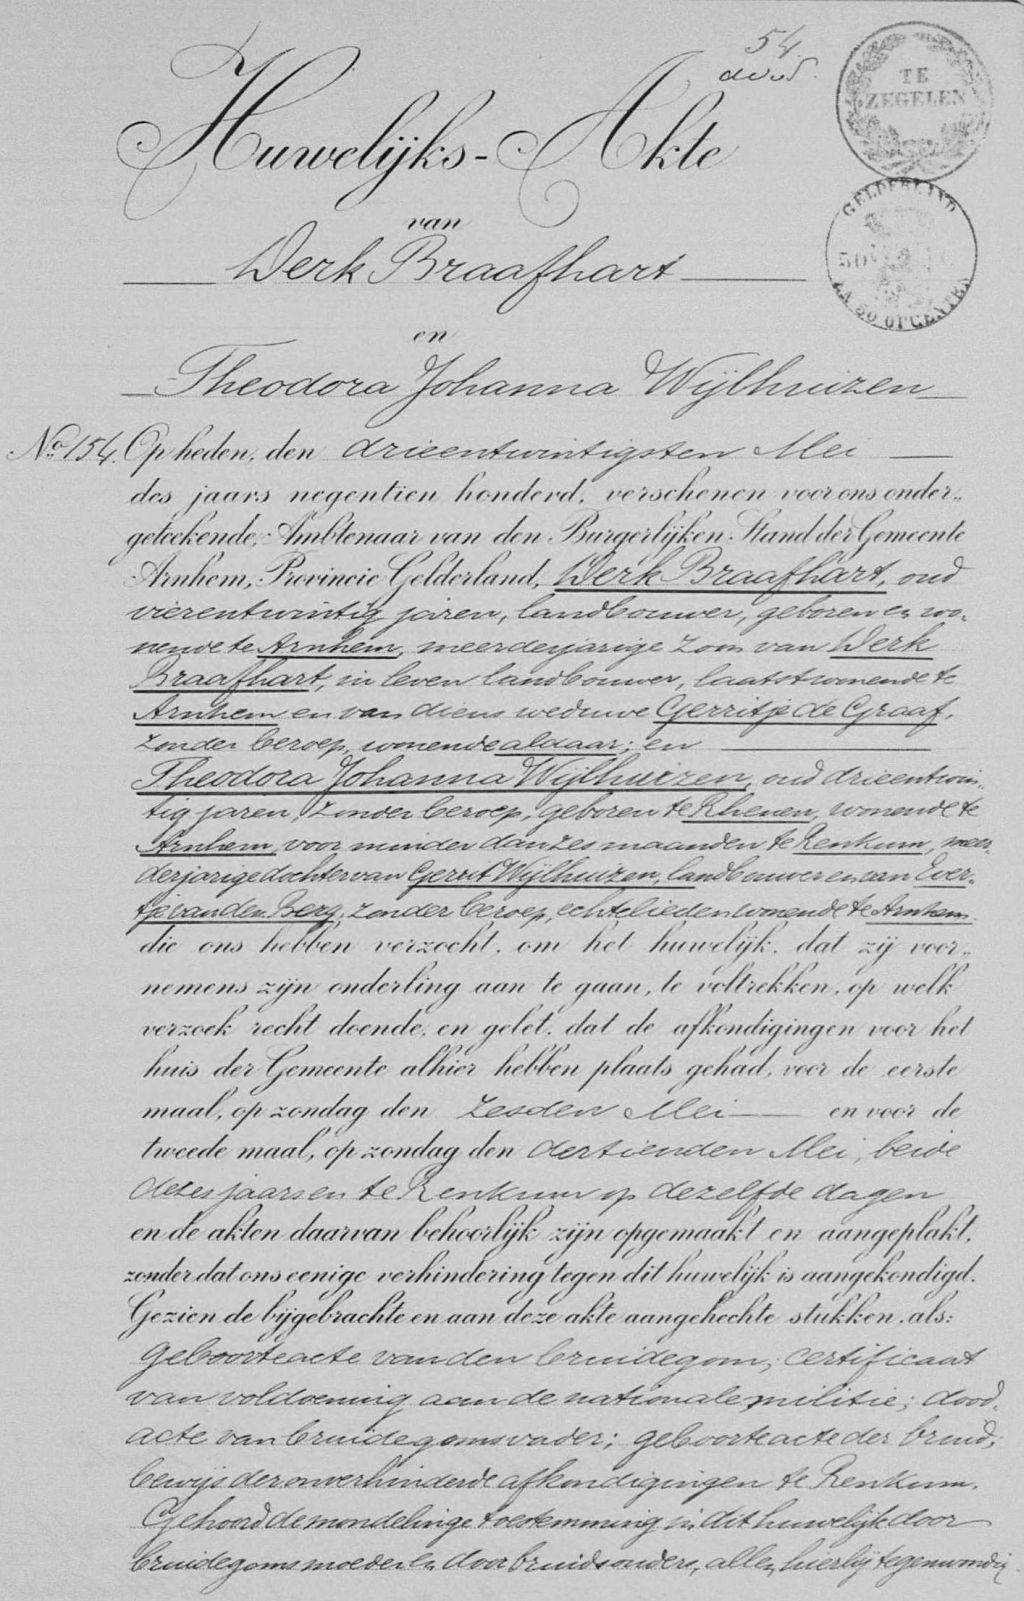 54
TE
ZEGELEN
Huwelijks-Akte
GELDERLAND
van
Derk Braafhart
50
50 OPCENTEN
en
Theodora Johanna Wijlhuizen
No. 154. Op heden, den drieentwintigsten Mei
des jaars negentien honderd, verschenen voor ons onder-
geteekende, Ambtenaar van den Burgerlijken Stand der Gemeente
Arnhem, Provincie Gelderland, Derk Braafhart, oud
vierentwintig jaren, landbouwer, geboren en wo-
nende te Arnhem, meerderjarige zoon van Derk
Braafhart, in leven landbouwer, laatst wonende te
Arnhem en van diens weduwe Gerritje de Graaf,
zonder beroep, wonende aldaar; en
Theodora Johanna Wijlhuizen, oud drieentwin-
tig jaren, zonder beroep, geboren te Rhenen, wonende te
Arnhem, voor minder dan zes maanden te Renkum, meer-
derjarige dochter van Gerrit Wijlhuizen, landbouwer en van Ever-
tje van den Berg, zonder beroep, echtelieden wonende te Arnhem.
die ons hebben verzocht, om het huwelijk, dat zij voor-
nemens zijn onderling aan te gaan, te voltrekken, op welk
verzoek recht doende, en gelet, dat de afkondigingen voor het
huis der Gemeente alhier hebben plaats gehad, voor de eerste
maal, op zondag den zesden Mei en voor de
tweede maal, op zondag den dertienden Mei, beide
dezes jaars en te Renkum op dezelfde dagen
en de akten daarvan behoorlijk zijn opgemaakt en aangeplakt,
zonder dat ons eenige verhindering tegen dit huwelijk is aangekondigd.
Gezien de bijgebrachte en aan deze akte aangehechte stukken, als:
geboorteacte van den bruidegom; certificaat
van voldoening aan de nationale militie; dood-
acte van bruidegomsvader; geboorteacte der bruid;
bewijs der onverhinderde afkondigingen te Renkum.
Gehoord de mondelinge toestemming in dit huwelijk door
bruidegoms moeder en door bruidsouders, allen hierbij tegenwoordig.